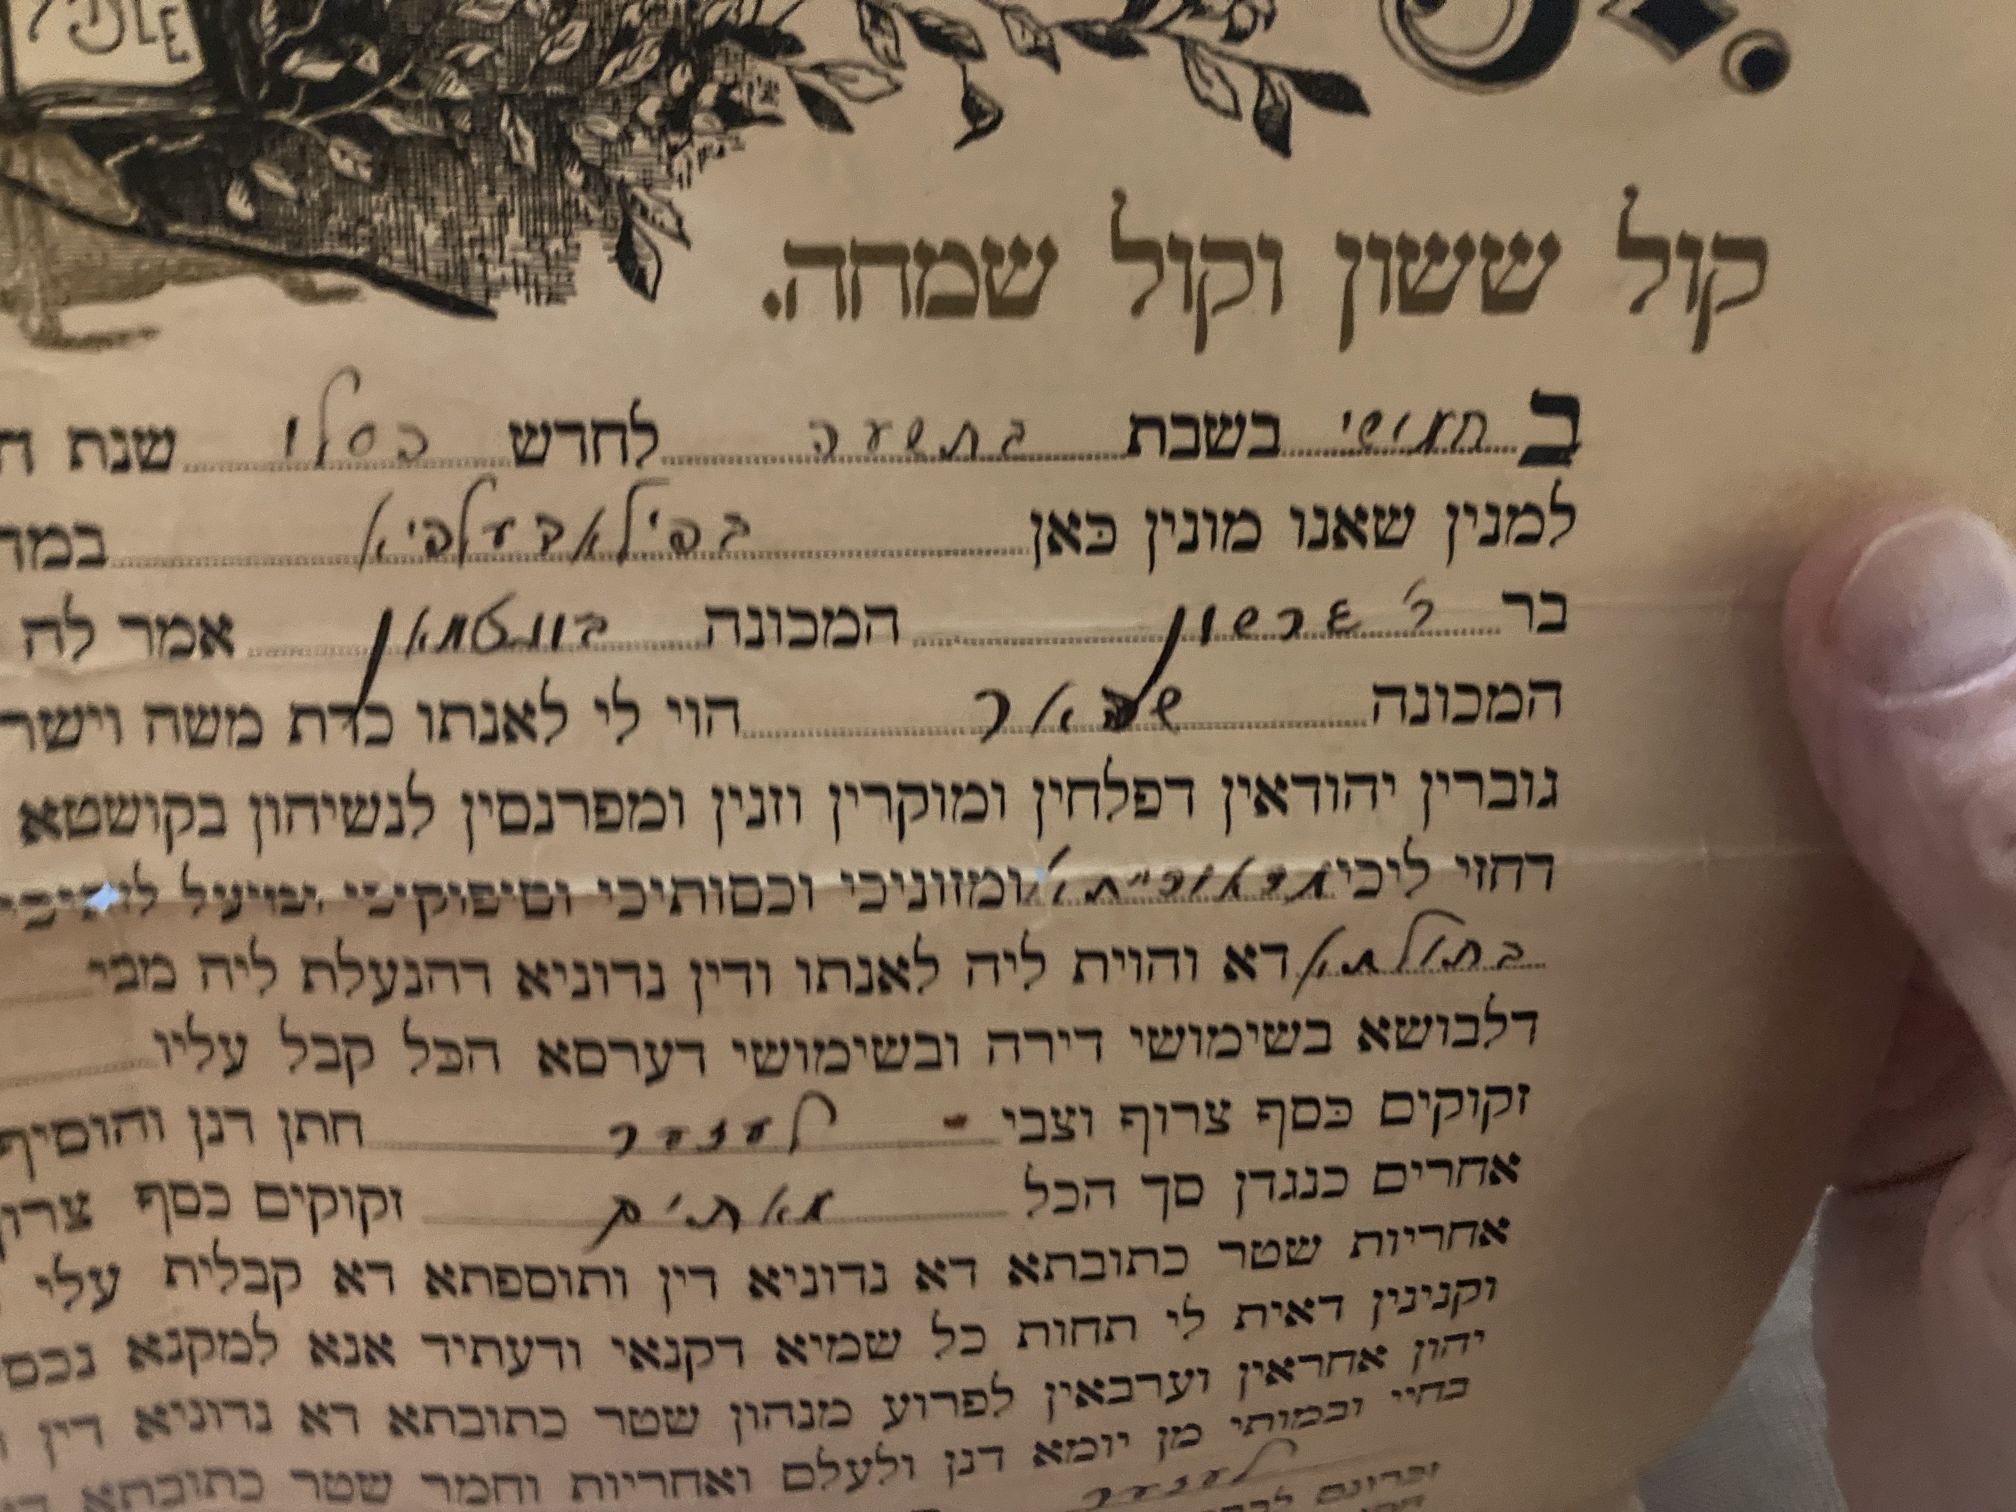 קול ששון וקול שמחה.
ב חמושי בשבת בתשעה לחדש כסלו שנת
למנין שאנו מונין כאן בפילאדעלפיא
בר ר' גרשון המכונה בוטמאן אמר לה
המכונה הוי לי לאנתו כדת משה וישר
גוברין יהודאין דפלחין ומוקרין וזנין ומפרנסין לנשיהון בקושטא
דחזי ליכי מדאורייתא ומזוניכי וכסותיכי וסיפוקיכי ומיעל לותיכי
בתולתא דא והוית ליה לאנתו ודין נדוניא דהנעלת ליה מבי
דלבושא בשימושי דירה ובשימושי דערסא הכל קבל עליו
זקוקים כסף צרוף וצבי - לעזער חתן דנן והוסיף
אחרים כנגדן סך הכל מאתים זקוקים כסף צרוף
אחריות שטר כתובתא דא נדוניא דין ותוספתא דא קבלית עלי
וקנינין דאית לי תחות כל שמיא דקנאי ודעתיד אנא למקנא נכס
יהון אחראין וערבאין לפרוע מנהון שטר כתובתא דא נדוניא דין
בחיי ובמותי מן יומא דנן ולעלם ואחריות וחמר שטר כתובתא
לעזער